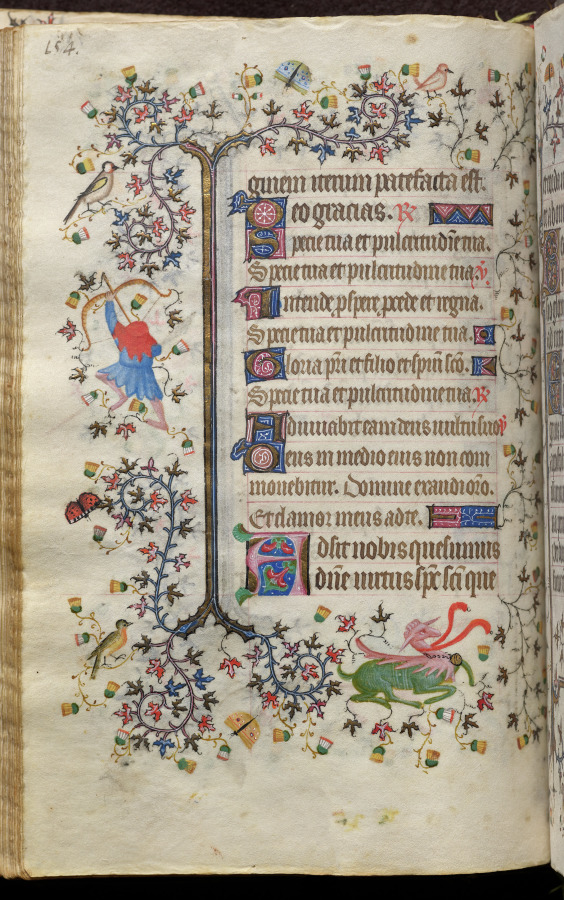 154.
quiem iterum patefacta est.
Deo gracias. R
Specie tua et pulcritudine tua.
Specie tua et pulcritudine tua. V
Intende pspere pcede et regna.
Specie tua et pulcritudine tua.
Gloria pri et filio et spiritui sco.
Specie tua et pulcritudine tua. R
Adiuvabit eam deus vultu suo V
Deus in medio eius non com
movebitur. Domine exaudi oro.
Et clamor meus ad te.
Adsit nobis quesumus
dne virtus sps sci que